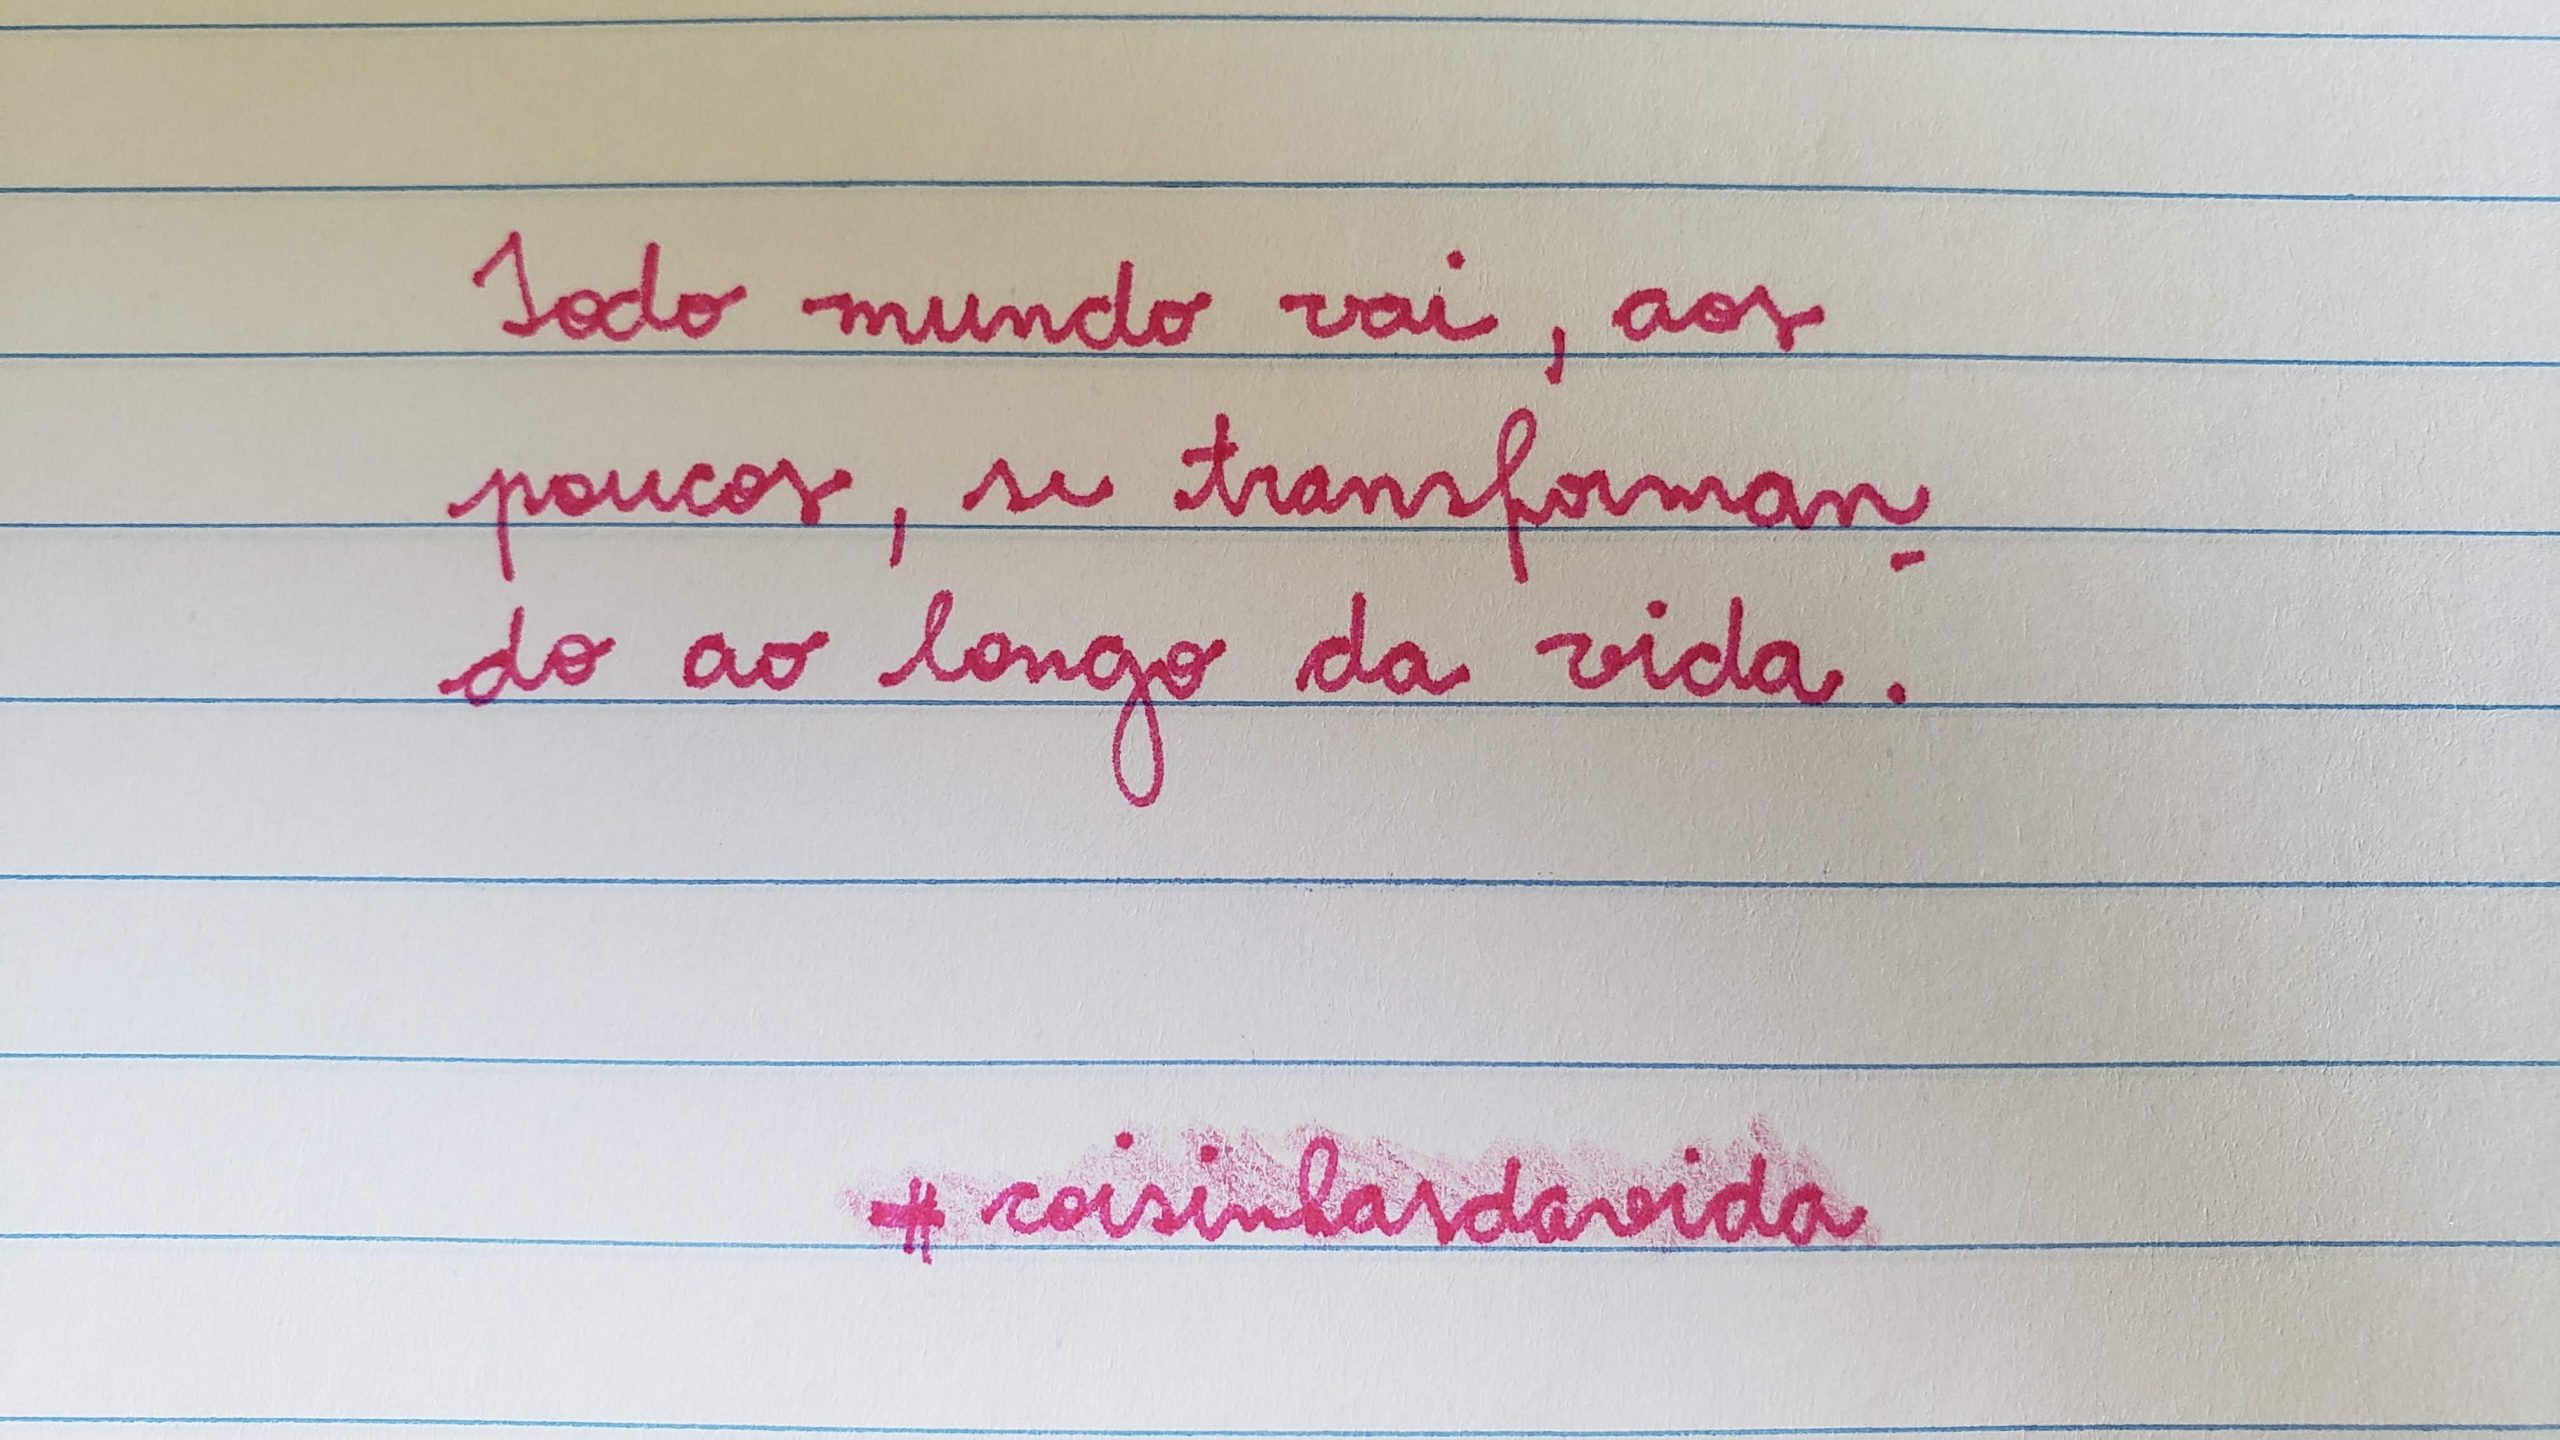 Todo mundo vai, aos
poucos, se transforman-
do ao longo da vida.
#coisinhasdavida